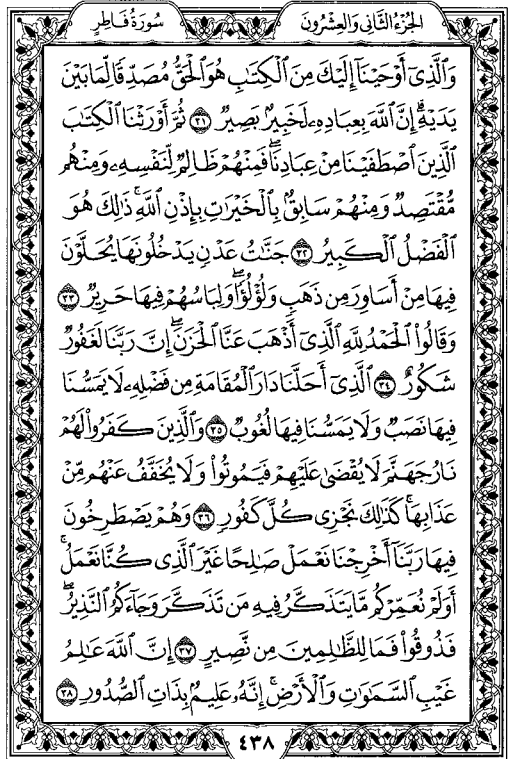 الجزء الثاني والعشرون
سورة فاطر
وَالَّذِىٓ أَوْحَيْنَآ إِلَيْكَ مِنَ الْكِتَٰبِ هُوَ الْحَقُّ مُصَدِّقًا لِّمَا بَيْنَ
يَدَيْهِ ۗ إِنَّ اللَّهَ بِعِبَادِهِۦ لَخَبِيرٌۢ بَصِيرٌ ٣١ ثُمَّ أَوْرَثْنَا الْكِتَٰبَ
الَّذِينَ اصْطَفَيْنَا مِنْ عِبَادِنَا ۖ فَمِنْهُمْ ظَالِمٌ لِّنَفْسِهِۦ وَمِنْهُم
مُّقْتَصِدٌ وَمِنْهُمْ سَابِقٌۢ بِالْخَيْرَٰتِ بِإِذْنِ اللَّهِ ۚ ذَٰلِكَ هُوَ
الْفَضْلُ الْكَبِيرُ ٣٢ جَنَّٰتُ عَدْنٍ يَدْخُلُونَهَا يُحَلَّوْنَ
فِيهَا مِنْ أَسَاوِرَ مِن ذَهَبٍ وَلُؤْلُؤًا ۖ وَلِبَاسُهُمْ فِيهَا حَرِيرٌ ٣٣
وَقَالُوا۟ الْحَمْدُ لِلَّهِ الَّذِىٓ أَذْهَبَ عَنَّا الْحَزَنَ ۖ إِنَّ رَبَّنَا لَغَفُورٌ
شَكُورٌ ٣٤ الَّذِىٓ أَحَلَّنَا دَارَ الْمُقَامَةِ مِن فَضْلِهِۦ لَا يَمَسُّنَا
فِيهَا نَصَبٌ وَلَا يَمَسُّنَا فِيهَا لُغُوبٌ ٣٥ وَالَّذِينَ كَفَرُوا۟ لَهُمْ
نَارُ جَهَنَّمَ لَا يُقْضَىٰ عَلَيْهِمْ فَيَمُوتُوا۟ وَلَا يُخَفَّفُ عَنْهُم مِّنْ
عَذَابِهَا ۚ كَذَٰلِكَ نَجْزِى كُلَّ كَفُورٍ ٣٦ وَهُمْ يَصْطَرِخُونَ
فِيهَا رَبَّنَآ أَخْرِجْنَا نَعْمَلْ صَٰلِحًا غَيْرَ الَّذِى كُنَّا نَعْمَلُ ۚ
أَوَلَمْ نُعَمِّرْكُم مَّا يَتَذَكَّرُ فِيهِ مَن تَذَكَّرَ وَجَآءَكُمُ النَّذِيرُ ۖ
فَذُوقُوا۟ فَمَا لِلظَّٰلِمِينَ مِن نَّصِيرٍ ٣٧ إِنَّ اللَّهَ عَٰلِمُ
غَيْبِ السَّمَٰوَٰتِ وَالْأَرْضِ ۚ إِنَّهُۥ عَلِيمٌۢ بِذَاتِ الصُّدُورِ ٣٨
٤٣٨